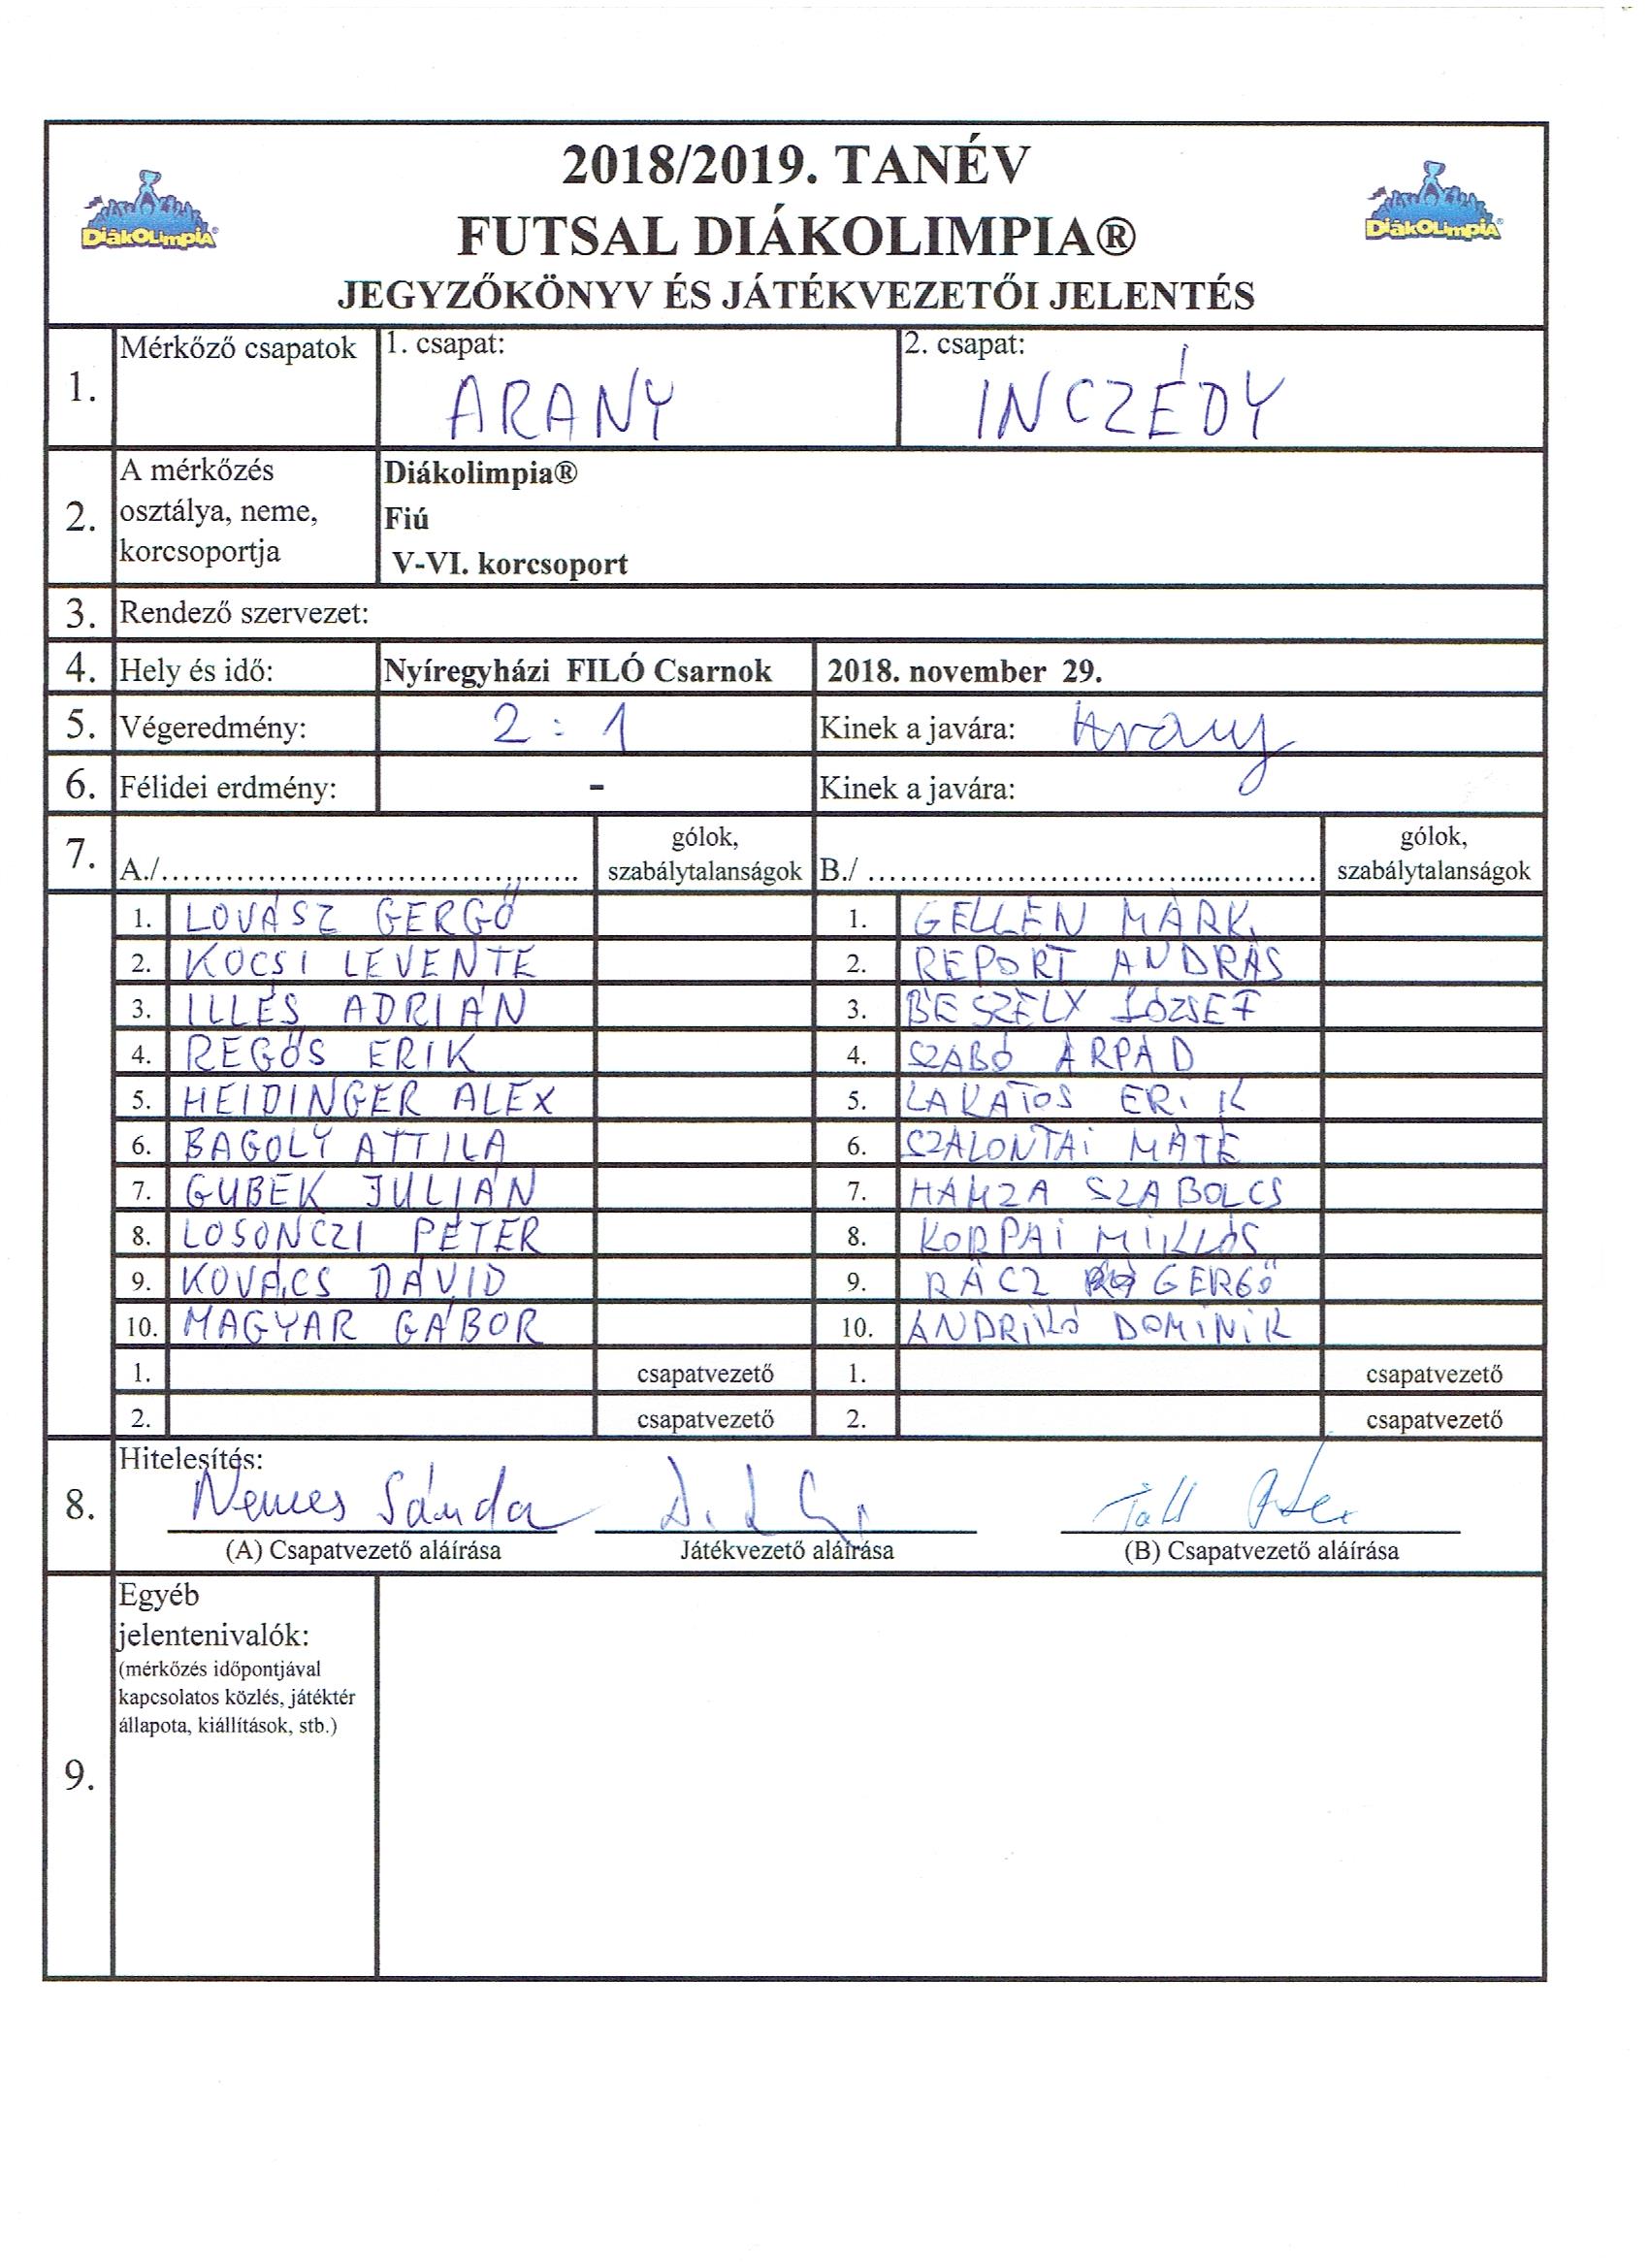 2018/2019. TANÉV
FUTSAL DIÁKOLIMPIA®
JEGYZŐKÖNYV ÉS JÁTÉKVEZETŐI JELENTÉS
DiákOLimpiA®
DiákOLimpiA®
1. Mérkőző csapatok 1. csapat: 2. csapat:
ARANY INCZÉDY
2. A mérkőzés osztálya, neme, korcsoportja
Diákolimpia®
Fiú
V-VI. korcsoport
3. Rendező szervezet:
4. Hely és idő: Nyíregyházi FILÓ Csarnok 2018. november 29.
5. Végeredmény: 2 : 1 Kinek a javára: Arany
6. Félidei erdmény: - Kinek a javára:
7. A./....................................... gólok, szabálytalanságok B./ .......................................... gólok, szabálytalanságok
1. LOVÁSZ GERGŐ 1. GELLÉN MÁRK
2. KOCSI LEVENTE 2. REPORT ANDRÁS
3. ILLÉS ADRIÁN 3. BESZELY JÓZSEF
4. REGŐS ERIK 4. SZABÓ ÁRPÁD
5. HEIDINGER ALEX 5. LAKATOS ERIK
6. BAGOLY ATTILA 6. SZALONTAI MÁTÉ
7. GUBEK JULIÁN 7. HAMZA SZABOLCS
8. LOSONCZI PÉTER 8. KORPAI MIKLÓS
9. KOVÁCS DÁVID 9. RÁCZ GERGŐ
10. MAGYAR GÁBOR 10. ANDRIKÓ DOMINIK
1. csapatvezető 1. csapatvezető
2. csapatvezető 2. csapatvezető
8. Hitelesítés:
Nemes Sándor
(A) Csapatvezető aláírása Játékvezető aláírása (B) Csapatvezető aláírása
9. Egyéb
jelentenivalók:
(mérkőzés időpontjával
kapcsolatos közlés, játéktér
állapota, kiállítások, stb.)